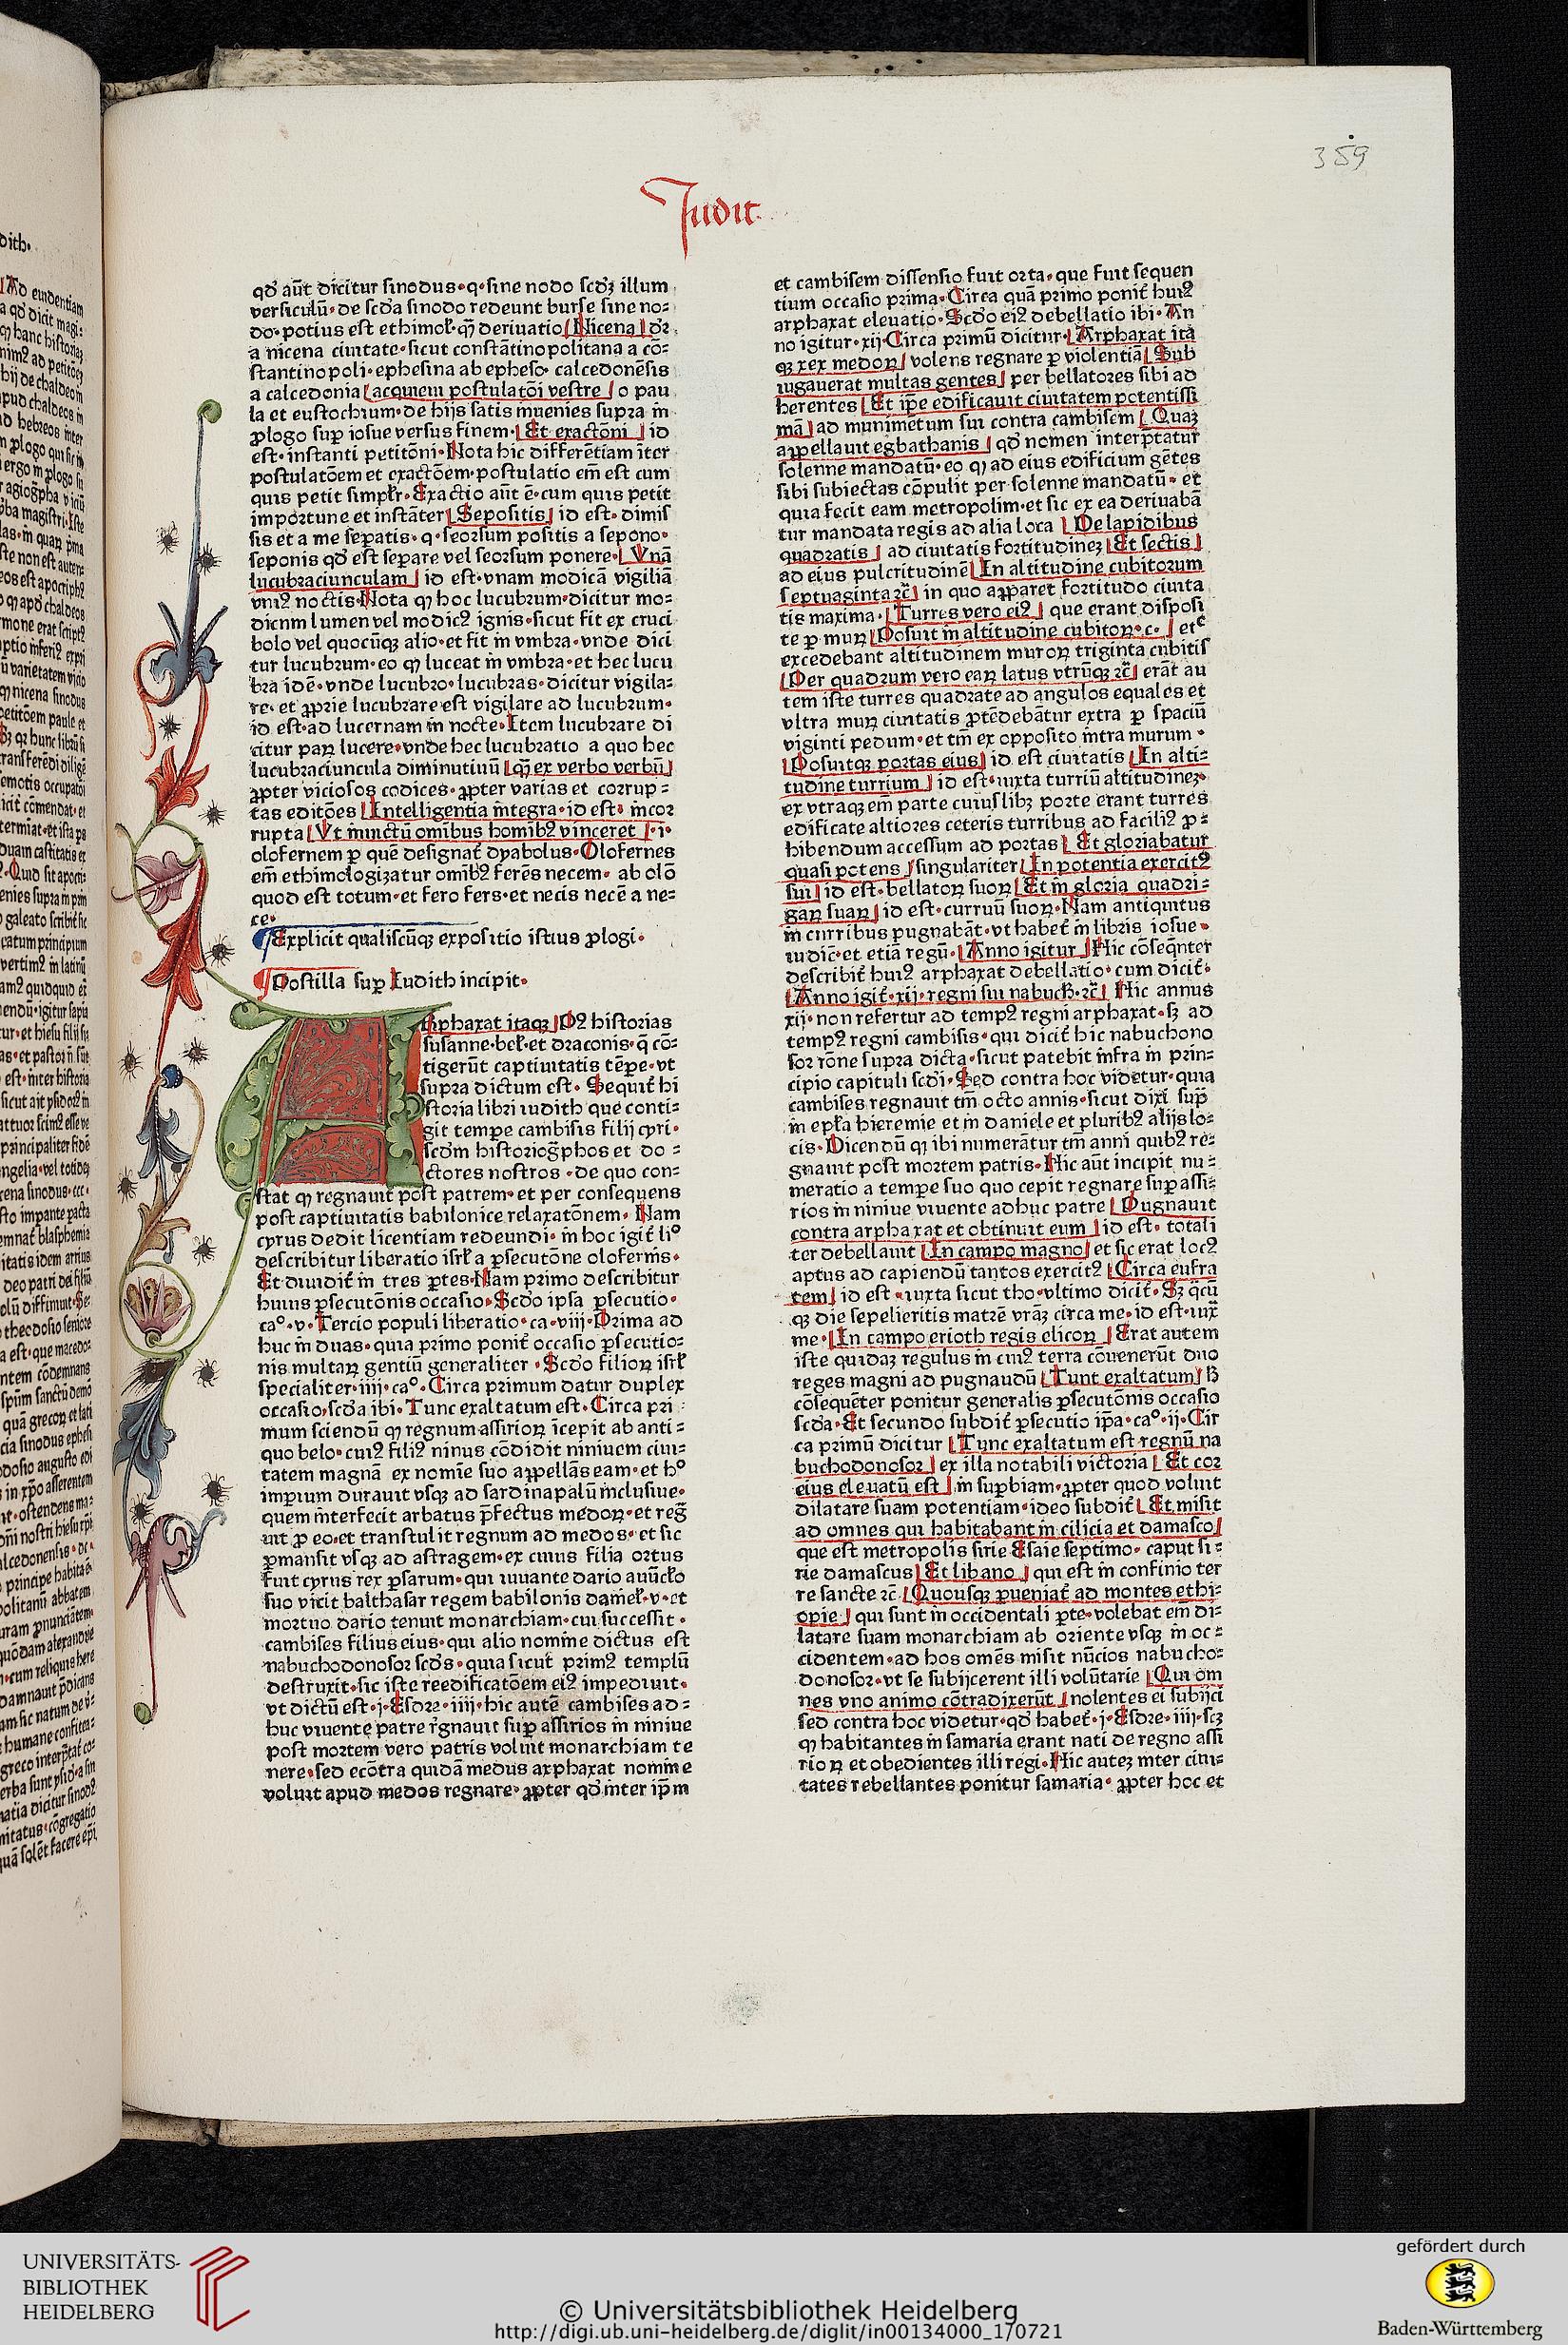 359
Judit
qď aūt dicitur sinodus·q·sine nodo scďʒ illum
versiculū·de scďa sinodo redeunt burse sine no=
do·potius est ethimoł·ꝙ̄ deriuatio Nicena ďꝛ
a nicena ciuitate·sicut constātinopolitana a cō=
stantinopoli·ephesina ab epheso· calcedonēsis
a calcedonia acquiem postulatōi vestre o pau
la et eustochium·de hijs satis inuenies supra in
ꝓlogo suꝑ iosue versus finem· Et exactōni id
est·instanti petitōni·Nota hic differētiam īter
postulatōem et exactōem·postulatio em̄ est cum
quis petit simpłr·Exactio aūt ē·cum quis petit
importune et instāter Sepositis id est·dimis
sis et a me seꝑatis·q·seorsum positis a sepono·
seponis qď est seꝑare vel seorsum ponere· Vnā
lucubraciunculam id est·vnam modicā vigiliā
vniꝰ noctis·Nota ꝙ hoc lucubrum·dicitur mo=
dicum lumen vel modicꝰ ignis·sicut fit ex cruci
bolo vel quocūqꝫ alio·et fit in vmbra·vnde dici
tur lucubrum·eo ꝙ luceat in vmbra·et hec lucu
bra idē·vnde lucubro·lucubras·dicitur vigila=
re·et ꝓprie lucubrare est vigilare ad lucubrum·
id est·ad lucernam in nocte·Item lucubrare di
citur paꝝ lucere·vnde hec lucubratio a quo hec
lucubraciuncula diminutiuū ꝙ̄ ex verbo verbū
ꝓpter viciosos codices·ꝓpter varias et corrup=
tas editōes Intelligentia integra·id est·incor
rupta Vt inuictū omibus homibꝰ vinceret ·i·
olofernem ꝑ quē designať dyabolus·Olofernes
em̄ ethimologizatur omibꝰ ferēs necem· ab olō
quod est totum·et fero fers·et necis necē a ne=
ce·
Explicit qualiscūqꝫ expositio istius ꝓlogi·
Postilla suꝑ Iudith incipit·
Arphaxat itaqꝫ Pꝰ historias
susanne·beł·et draconis·q̄ cō=
tigerūt captiuitatis tēpe·vt
supra dictum est· Sequiť hi
storia libri iudith que conti=
git tempe cambisis filij cyri·
scďm historiogͣphos et do=
ctores nostros·de quo con=
stat ꝙ regnauit post patrem·et per consequens
post captiuitatis babilonice relaxatōnem· Nam
cyrus dedit licentiam redeundi·in hoc igiť liº
describitur liberatio isrł a ꝑsecutōne oloferīs·
Et diuidiť in tres ꝑtes·Nam primo describitur
huius ꝑsecutōnis occasio·Scďo ipsa ꝑsecutio·
caº·v·Tercio populi liberatio·ca·viij·Prima ad
huc in duas·quia primo poniť occasio ꝑsecutio=
nis multaꝝ gentiū generaliter·Scďo filioꝝ isrł
specialiter·iiij·caº·Circa primum datur duplex
occasio·scďa ibi·Tunc exaltatum est·Circa pri
mum sciendū ꝙ regnum assirioꝝ īcepit ab anti=
quo belo·cuiꝰ filiꝰ ninus cōdidit niniuem ciui=
tatem magnā ex nomīe suo appellās eam·et hº
imꝑium durauit vsqꝫ ad sardinapalū inclusiue·
quem interfecit arbatus p̄fectus medoꝝ·et reg̃
uit ꝓ eo·et transtulit regnum ad medos·et sic
ꝑmansit vsqꝫ ad astragem·ex cuius filia ortus
fuit cyrus rex ꝑsarum·qui iuuante dario auūcło
suo vicit balthasar regem babilonis danieł·v·et
mortuo dario tenuit monarchiam·cui successit·
cambises filius eius·qui alio nomine dictus est
nabuchodonosor scďs·quia sicut primꝰ templū
destruxit·sic iste reedificatōem eiꝰ impediuit·
vt dictū est·j·Esdre·iiij·hic autē cambises ad=
huc viuente patre r̃gnauit suꝑ assirios in niniue
post mortem vero patris voluit monarchiam te
nere·sed ecōtra quidā medus arphaxat nomine
voluit apud medos regnare·ꝓpter qď inter ip̄m
et cambisem dissensio fuit orta·que fuit sequen
tium occasio prima·Circa quā primo poniť huiꝰ
arphaxat eleuatio·Scďo eiꝰ debellatio ibi·An
no igitur·xij·Circa primū dicitur· Arphaxat ita
qꝫ rex medoꝝ volens regnare ꝑ violentiā Sub
iugauerat multas gentes per bellatores sibi ad
herentes Et ip̄e edificauit ciuitatem potentissi
mā ad munimetum sui contra cambisem Quaʒ
appellauit egbathanis qď nomen interp̄tatur
solenne mandatū·eo ꝙ ad eius edificium gētes
sibi subiectas cōpulit per solenne mandatū·et
quia fecit eam metropolim·et sic ex ea deriuabā
tur mandata regis ad alia loca De lapidibus
quadratis ad ciuitatis fortitudineʒ Et sectis
ad eius pulcritudinē In altitudine cubitorum
septuaginta ꝛc̄ in quo apparet fortitudo ciuita
tis maxima· Turres vero eiꝰ que erant disposi
te ꝑ muꝝ Posuit in altitudine cubitoꝝ·c· etͨ
excedebant altitudinem muroꝝ triginta cubitis
Per quadrum vero eaꝝ latus vtrūqꝫ ꝛc̄ erāt au
tem iste turres quadrate ad angulos equales et
vltra muꝝ ciuitatis ꝓtēdebātur extra ꝑ spaciū
viginti pedum·et tm̄ ex opposito intra murum·
Posuitqꝫ portas eius id est ciuitatis In alti=
tudine turrium id est·iuxta turriū altitudineʒ·
ex vtraqꝫ em̄ parte cuiuslibʒ porte erant turres
edificate altiores ceteris turribus ad faciliꝰ ꝓ=
hibendum accessum ad portas Et gloriabatur
quasi potens singulariter In potentia exercitꝰ
sui id est·bellatoꝝ suoꝝ Et in gloria quadri=
gaꝝ suaꝝ id est·curruū suoꝝ·Nam antiquitus
in curribus pugnabāt·vt habeť in libris iosue·
iudic̄·et etiā regū· Anno igitur Hic cōseq̄nter
describiť huiꝰ arphaxat debellatio·cum diciť·
Anno igiť·xij·regni sui nabuch·ꝛc̄ Hic annus
xij·non refertur ad tempꝰ regni arphaxat·sʒ ad
tempꝰ regni cambisis·qui diciť hic nabuchono
sor rōne supra dicta·sicut patebit infra in prin=
cipio capituli scďi·Sed contra hoc videtur·quia
cambises regnauit tm̄ octo annis·sicut dixi suꝑ
in epła hieremie et in daniele et pluribꝰ alijs lo=
cis·Dicendū ꝙ ibi numerātur tm̄ anni quibꝰ re=
gnauit post mortem patris·Hic aūt incipit nu=
meratio a tempe suo quo cepit regnare suꝑ assi=
rios in niniue viuente adhuc patre Pugnauit
contra arphaxat et obtinuit eum id est·totali
ter debellauit In campo magno et sic erat locꝰ
aptus ad capiendū tantos exercitꝰ Circa eufra
tem id est·iuxta sicut tho·vltimo diciť·Sʒ q̄cū
qꝫ die sepelieritis matrē vr̄āʒ circa me·id est·iux̄
me· In campo erioth regis elicoꝝ Erat autem
iste quidaʒ regulus in cuiꝰ terra cōuenerūt duo
reges magni ad pugnandū Tunt exaltatum
cōsequēter ponitur generalis ꝑsecutōnis occasio
scďa·Et secundo subdiť ꝑsecutio ip̄a·caº·ij·Cir
ca primū dicitur Tunc exaltatum est regnū na
buchodonosor ex illa notabili victoria Et cor
eius eleuatū est in suꝑbiam·ꝓpter quod voluit
dilatare suam potentiam·ideo subdiť Et misit
ad omnes qui habitabant in cilicia et damasco
que est metropolis sirie Esaie septimo·caput si=
rie damascus Et libano qui est in confinio ter
re sancte ꝛc̄ Quousqꝫ ꝑueniať ad montes ethi=
opie qui sunt in occidentali ꝑte·volebat em̄ di=
latare suam monarchiam ab oriente vsqꝫ in oc=
cidentem·ad hos omēs misit nūcios nabucho=
donosor·vt se subijcerent illi volūtarie Qui om
nes vno animo cōtradixerūt nolentes ei subijci
sed contra hoc videtur·qď habeť·j·Esdre·iiij·scʒ
ꝙ habitantes in samaria erant nati de regno assi
rioꝝ et obedientes illi regi·Hic auteʒ inter ciui=
tates rebellantes ponitur samaria·ꝓpter hoc et
UNIVERSITÄTS-
BIBLIOTHEK
HEIDELBERG
© Universitätsbibliothek Heidelberg
http://digi.ub.uni-heidelberg.de/diglit/in00134000_170721
gefördert durch
Baden-Württemberg